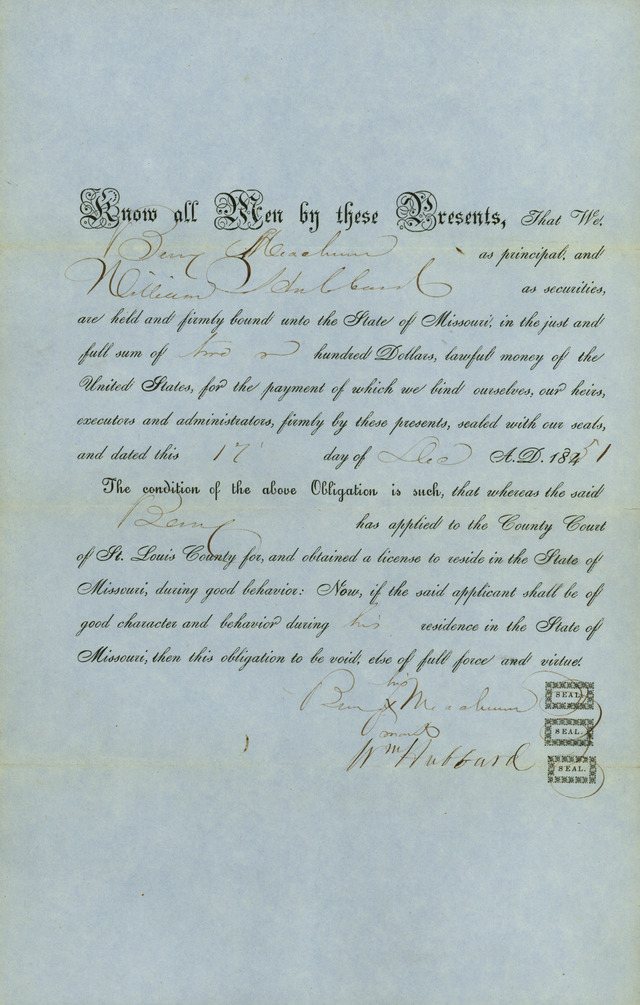 Know all Men by these Presents, That We,
Berry Meachum as principal, and
William Hubbard as securities,
are held and firmly bound unto the State of Missouri, in the just and
full sum of two hundred Dollars, lawful money of the
United States, for the payment of which we bind ourselves, our heirs,
executors and administrators, firmly by these presents, sealed with our seals,
and dated this 17 day of Dec A.D. 1851
The condition of the above Obligation is such, that whereas the said
Berry has applied to the County Court
of St. Louis County for, and obtained a license to reside in the State of
Missouri, during good behavior: Now, if the said applicant shall be of
good character and behavior during his residence in the State of
Missouri, then this obligation to be void, else of full force and virtue.
his
Berry x Meachum SEAL.
mark SEAL.
Wm Hubbard SEAL.